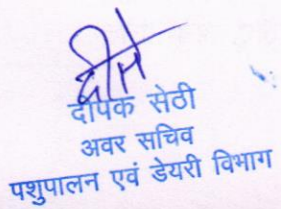 दीपक सेठी
अवर सचिव
पशुपालन एवं डेयरी विभाग